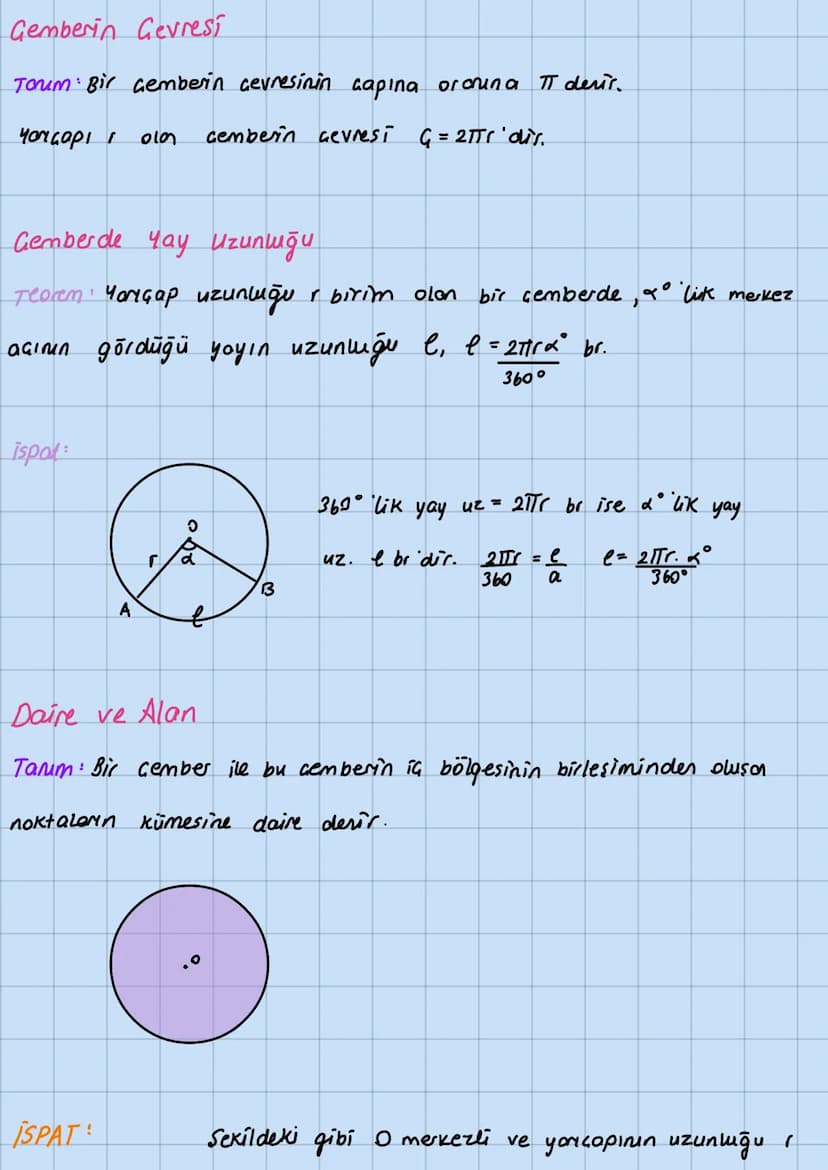 Çemberin Çevresi
Tanım: Bir çemberin çevresinin çapına oranına π denir.
Yarıçapı r olan çemberin çevresi Ç = 2πr 'dir.
Çemberde Yay Uzunluğu
Teorem: Yarıçap uzunluğu r birim olan bir çemberde, α° 'lik merkez
açının gördüğü yayın uzunluğu ℓ, ℓ = 2πrα° / 360° br.
ispat:
360° 'lik yay uz = 2πr br ise α° 'lik yay
uz. ℓ br 'dir. 2πr / 360 = ℓ / α ℓ = 2πr. α° / 360°
O
r α
A ℓ B
Daire ve Alan
Tanım: Bir çember ile bu çemberin iç bölgesinin birleşiminden oluşan
noktaların kümesine daire denir.
.O
İSPAT: Şekildeki gibi O merkezli ve yarıçapının uzunluğu r